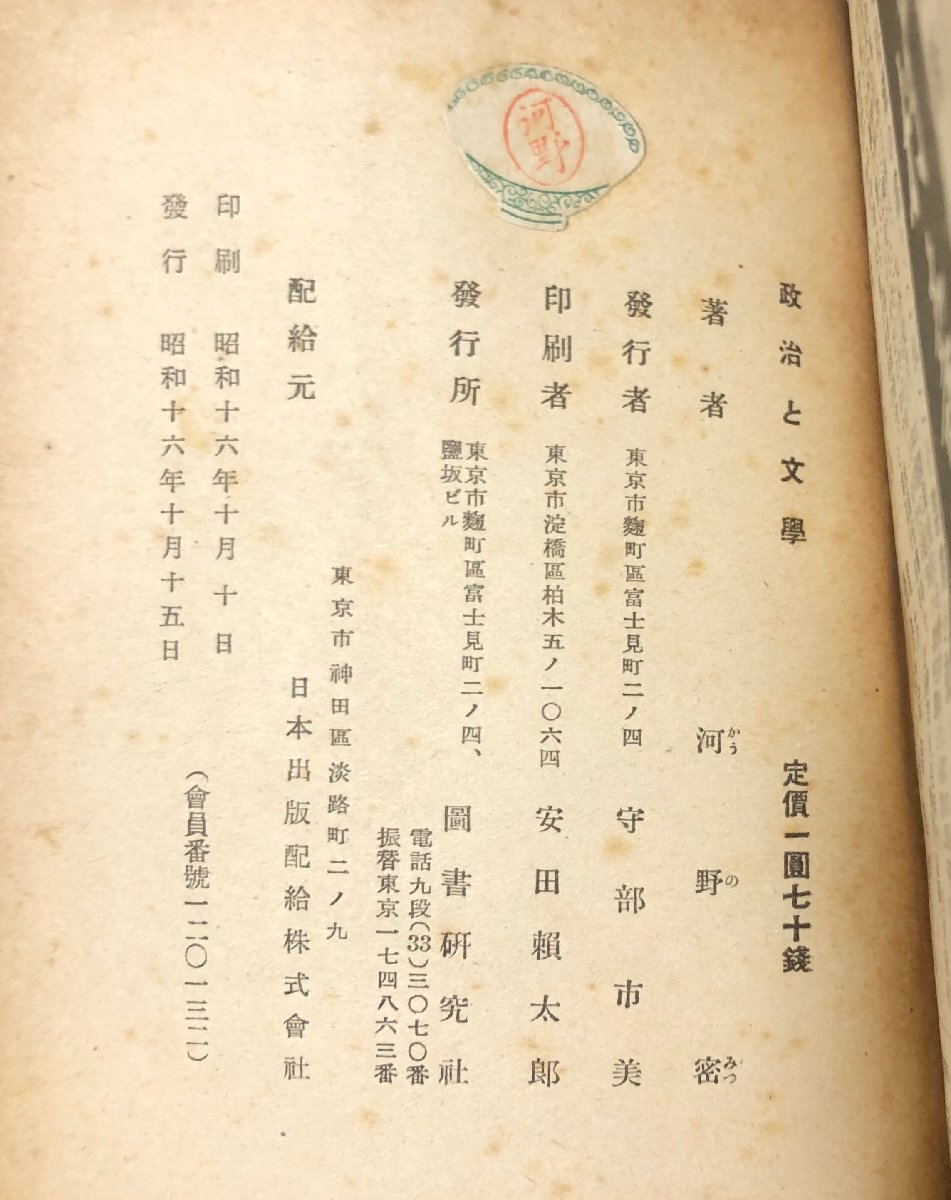 政治と文學
定價一圓七十錢
著者 河野密
かうのみつ
發行者 東京市麴町區富士見町二ノ四 守部市美
印刷者 東京市淀橋區柏木五ノ一〇六四 安田賴太郎
發行所 東京市麴町區富士見町二ノ四、
鹽坂ビル 圖書硏究社
電話九段(33)三〇七〇番
振替東京一七四八六三番
東京市神田區淡路町二ノ九
配給元 日本出版配給株式會社
印刷 昭和十六年十月十日
發行 昭和十六年十月十五日
(會員番號一二〇一三二)
河野